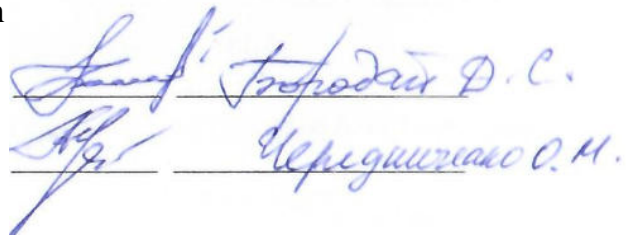 Бородай Д. С.
Чередниченко О. М.